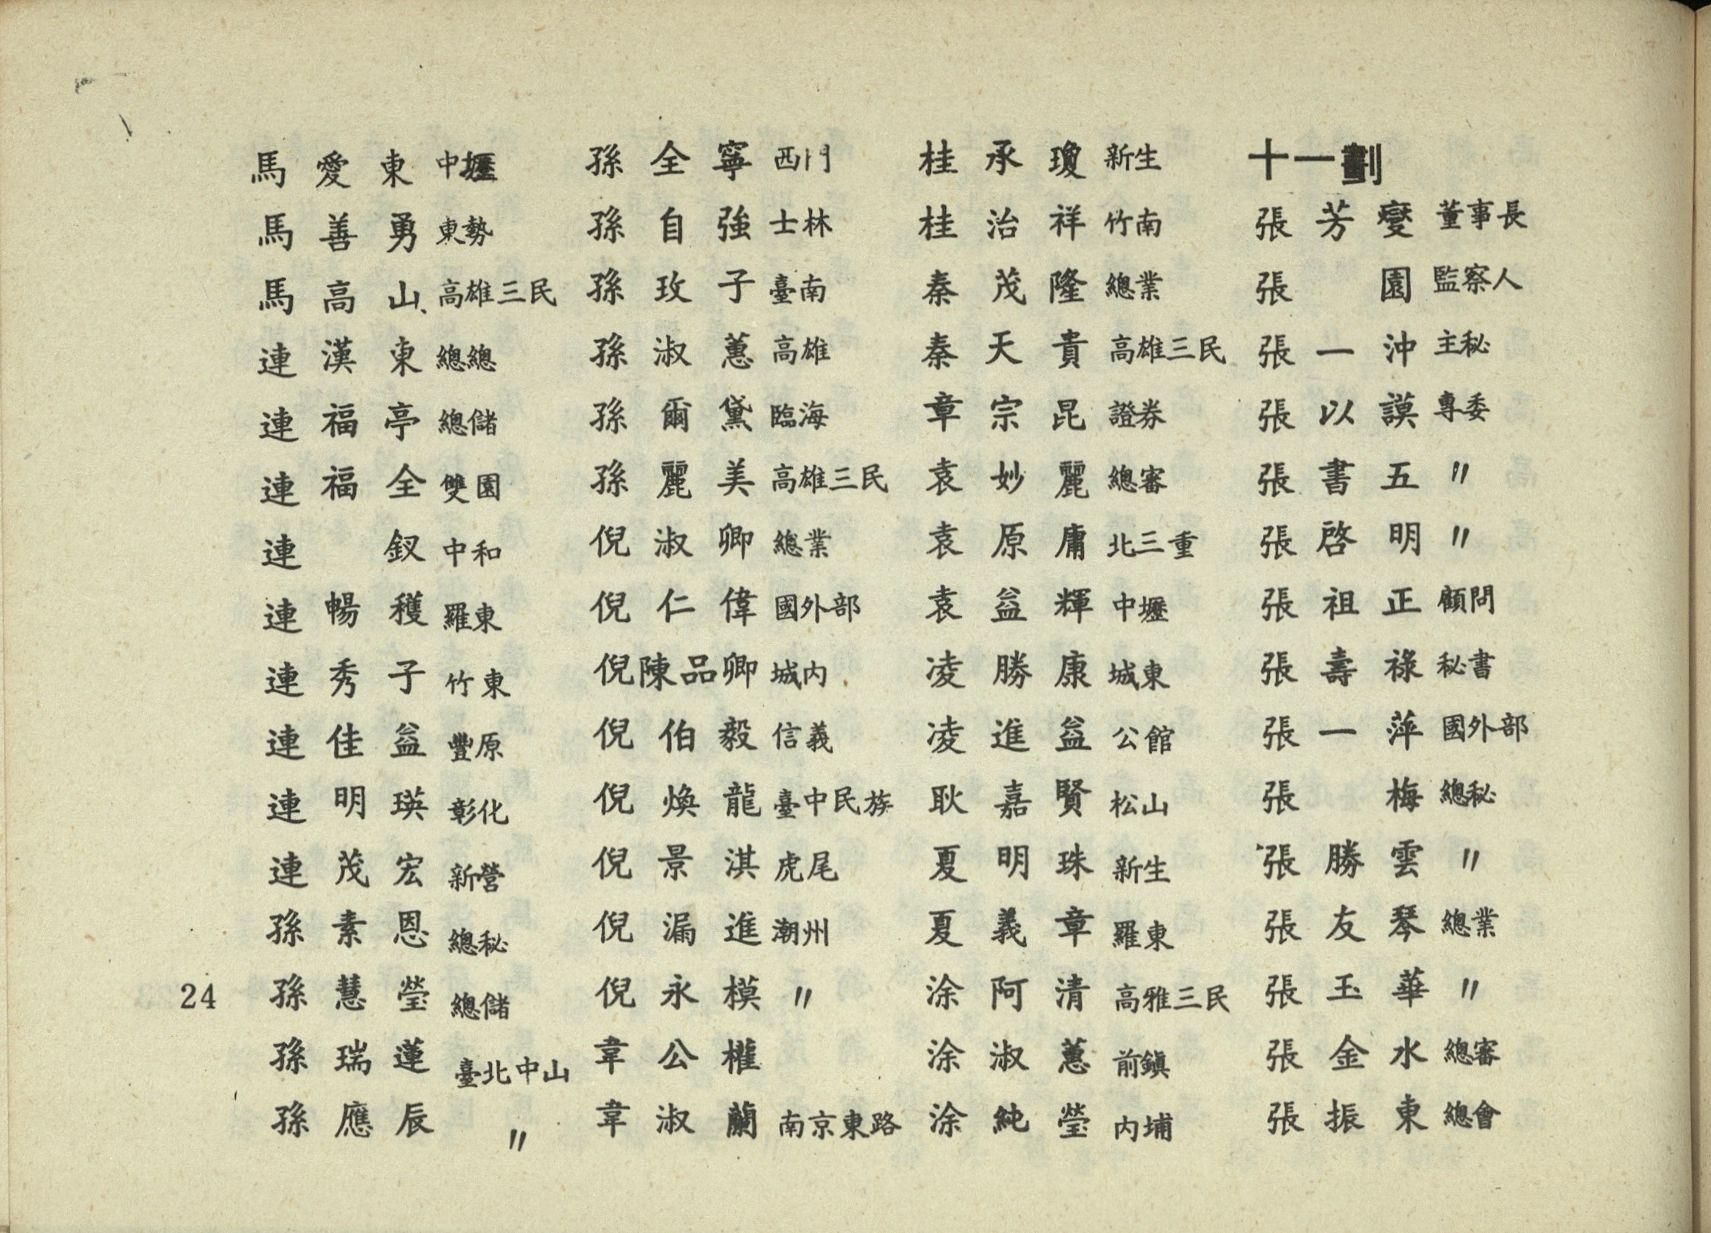 馬愛東 中壢
馬善勇 東勢
馬高山 高雄三民
連漢東 總總
連福亭 總儲
連福全 雙園
連 釵 中和
連暢穫 羅東
連秀子 竹東
連佳益 豐原
連明瑛 彰化
連茂宏 新營
孫素恩 總秘
孫慧瑩 總儲
孫瑞蓮 臺北中山
孫應辰 〃
孫全寧 西門
孫自強 士林
孫玫子 臺南
孫淑蕙 高雄
孫爾黛 臨海
孫麗美 高雄三民
倪淑卿 總業
倪仁偉 國外部
倪陳品卿 城内
倪伯毅 信義
倪煥龍 臺中民族
倪景淇 虎尾
倪漏進 潮州
倪永模 〃
韋公權
韋淑蘭 南京東路
桂承瓊 新生
桂治祥 竹南
秦茂隆 總業
秦天貴 高雄三民
章宗昆 證券
袁妙麗 總審
袁原庸 北三重
袁益輝 中壢
凌勝康 城東
凌進益 公館
耿嘉賢 松山
夏明珠 新生
夏義章 羅東
涂阿清 高雅三民
涂淑蕙 前鎮
涂純瑩 内埔
十一劃
張芳燮 董事長
張 園 監察人
張一沖 主秘
張以謨 專委
張書五 〃
張啓明 〃
張祖正 顧問
張壽祿 秘書
張一萍 國外部
張 梅 總秘
張勝雲 〃
張友琴 總業
張玉華 〃
張金水 總審
張振東 總會
24